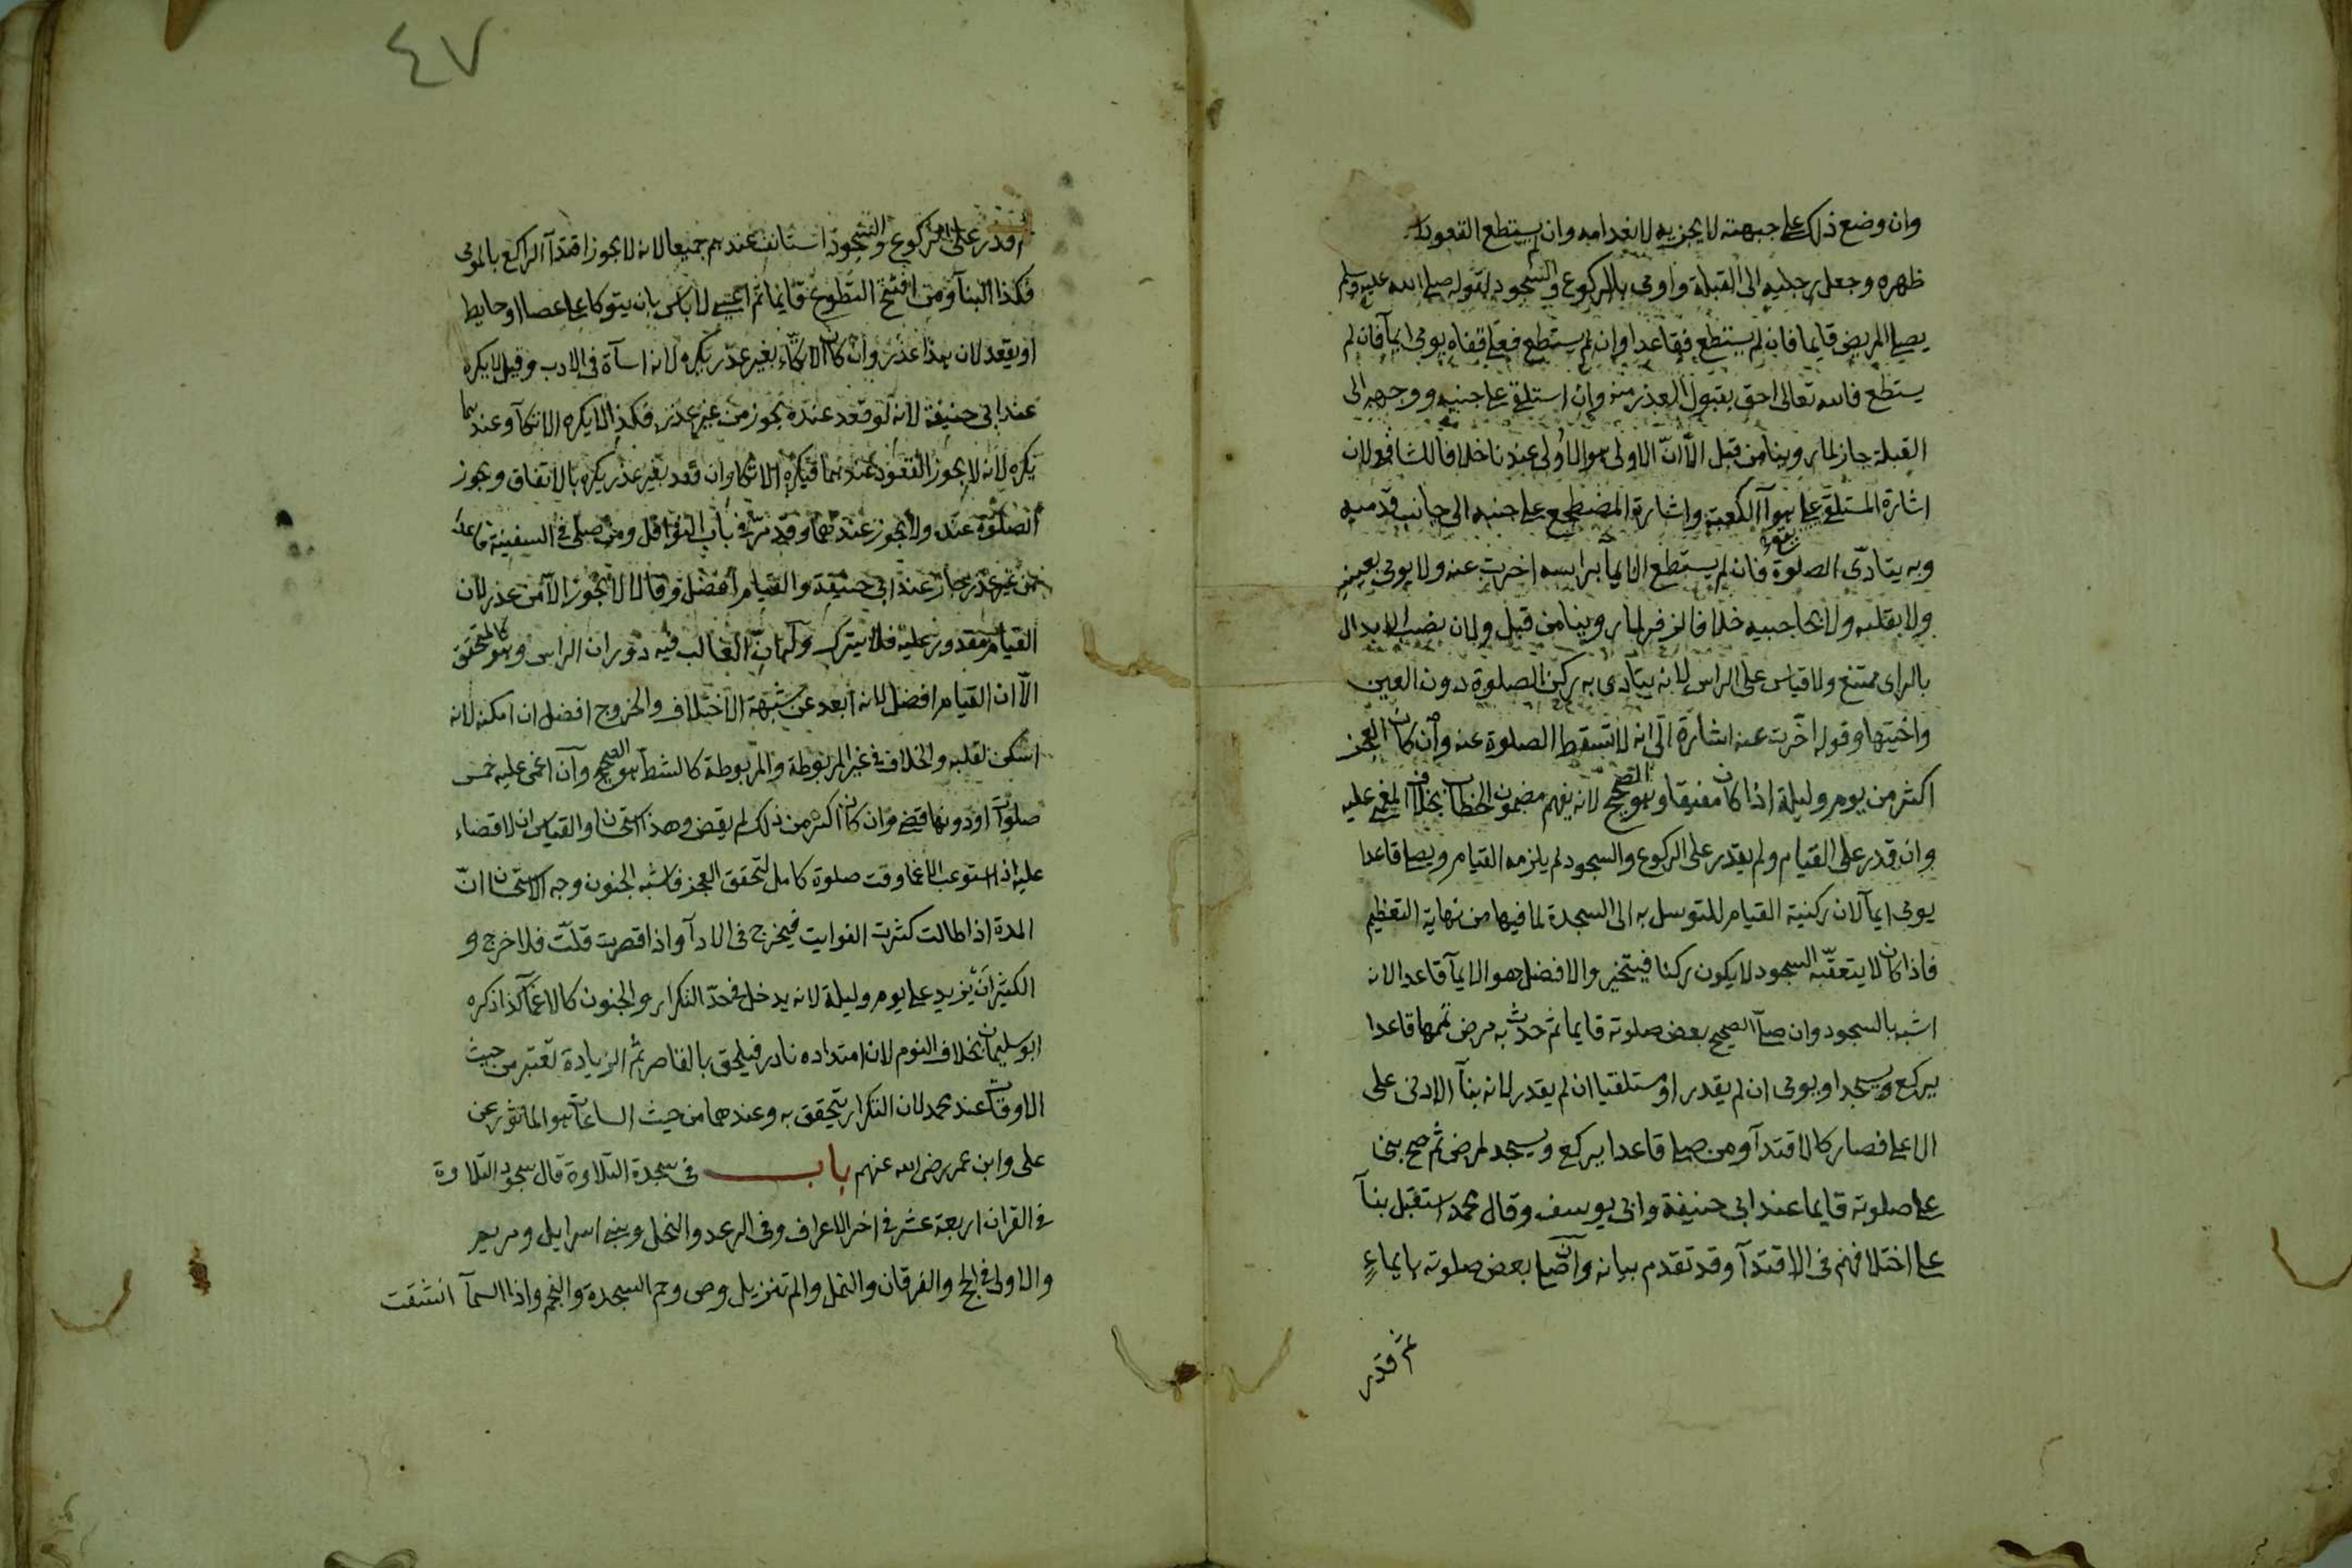 وان وضع ذلك على جبهته لا يجزيه لانعدامه وان لم يستطع القعود
ظهره وجعل رجليه الى القبلة واومى بالركوع والسجود لقوله صلى الله عليه وسلم
يصلى المريض قايما فان لم يستطع فقاعدا وان لم يستطع فعلى قفاه يومى ايمآ فان لم
يستطع فالله تعالى احق بقبول العذر منه وان استلقى على جنبه ووجهه الى
القبلة جاز لما روينا من قبل الّا انّ الاولى هو الاولى عندنا خلافا للشافعى لان
اشارة المستلقى على هوآ الكعبة واشارة المضطجع على جنبه الى جانب قدميه
وبه يتادّى الصلوة فان لم يستطع الايما براسه اخرت عنه ولا يومى بعينيه
ولا بقلبه ولا بحاجبيه خلافا لزفر لما روينا من قبل ولان نصب الابدال
بالراى ممتنع ولا قياس على الراس لانه يتادى به ركن الصلوة دون العين
واختيها وقوله اخّرت عنه اشارة الى انه لا تسقط الصلوة عنه وان كان العجز
اكثر من يوم وليلة اذا كان مفيقا وهو الصحيح لانه يفهم مضمون الخطاب بخلاف المغمى عليه
وان قدر على القيام ولم يقدر على الركوع والسجود لم يلزمه القيام ويصلى قاعدا
يومى ايمآ لان ركنية القيام للتوسل به الى السجدة لما فيها من نهاية التعظيم
فاذا كان لا يتعقّبه السجود لا يكون ركنا فيتخير والافضل هو الايمآ قاعدا لانه
اشبه بالسجود وان صلّى الصحيح بعض صلوته قايما ثم حدث به مرض تمّمها قاعدا
يركع ويسجد او يومى ان لم يقدر او مستلقيا ان لم يقدر لانه بنآ الادنى على
الاعلى فصار كالاقتدآ ومن صلى قاعدا يركع ويسجد لمرض ثم صح بنى
على صلوته قايما عند ابى حنيفة وابى يوسف وقال محمد استقبل بنآ
على اختلافهم فى الاقتدآ وقد تقدم بيانه وان صلى بعض صلوته بايماءٍ
ثم قدر
قدر على الركوع والسجود استانف عندهم جميعا لانه لا يجوز اقتدآ الراكع بالمومى
فكذا البنآ ومن افتتح التطوع قايما ثم اعيى لا باس بان يتوكا على عصا او حايط
او يقعد لان هذا عذر وان كان الاتكاء بغير عذر يكره لانه اسآة فى الادب وقيل لا يكره
عند ابى حنيفة لانه لو قعد عنده يجوز من غير عذر فكذا لا يكره الاتكآ وعندهما
يكره لانه لا يجوز القعود عندهما فيكره الاتكا وان قعد بغير عذر يكره بالاتفاق ويجوز
الصلوة عنده ولا يجوز عندهما وقد مرّ فى باب النوافل ومن صلى فى السفينة قاعدا
من غير عذر جاز عند ابى حنيفة والقيام افضل وقالا لا يجوز الّا من عذر لان
القيام مقدور عليه فلا يترك وله انّ الغالب فيه دوران الراس وهو كالمتحقق
الّا ان القيام افضل لانه ابعد عن شبهة الاختلاف والخروج افضل ان امكنه لانه
اسكن لقلبه والخلاف فى غير المربوطة والمربوطة كالشط هو الصحيح وان اغمى عليه خمس
صلوات او دونها قضى وان كان اكثر من ذلك لم يقض وهذا استحسان والقياس ان لا قضاء
عليه اذا استوعب الاغما وقت صلوة كامل لتحقق العجز فاشبه الجنون وجه الاستحسان انّ
المدة اذا طالت كثرت الفوايت فيحرج فى الادآ واذا قصرت قلّت فلا حرج و
الكثير ان يزيد على يوم وليلة لانه يدخل فى حدّ التكرار والجنون كالاغمآ كذا ذكره
ابو سليمان بخلاف النوم لان امتداده نادر فيلحق بالقاصر ثم الزيادة تعتبر من حيث
الاوقات عند محمد لان التكرار يتحقق به وعندهما من حيث الساعات هو الماثور عن
على وابن عمر رضى الله عنهم باب فى سجدة التلاوة قال سجود التلاوة
فى القران اربعة عشر فى اخر الاعراف وفى الرعد والنحل وبنى اسرايل ومريم
والاولى فى الحج والفرقان والنمل والم تنزيل وص وحم السجدة والنجم واذا السمآ انشقت
٤٧